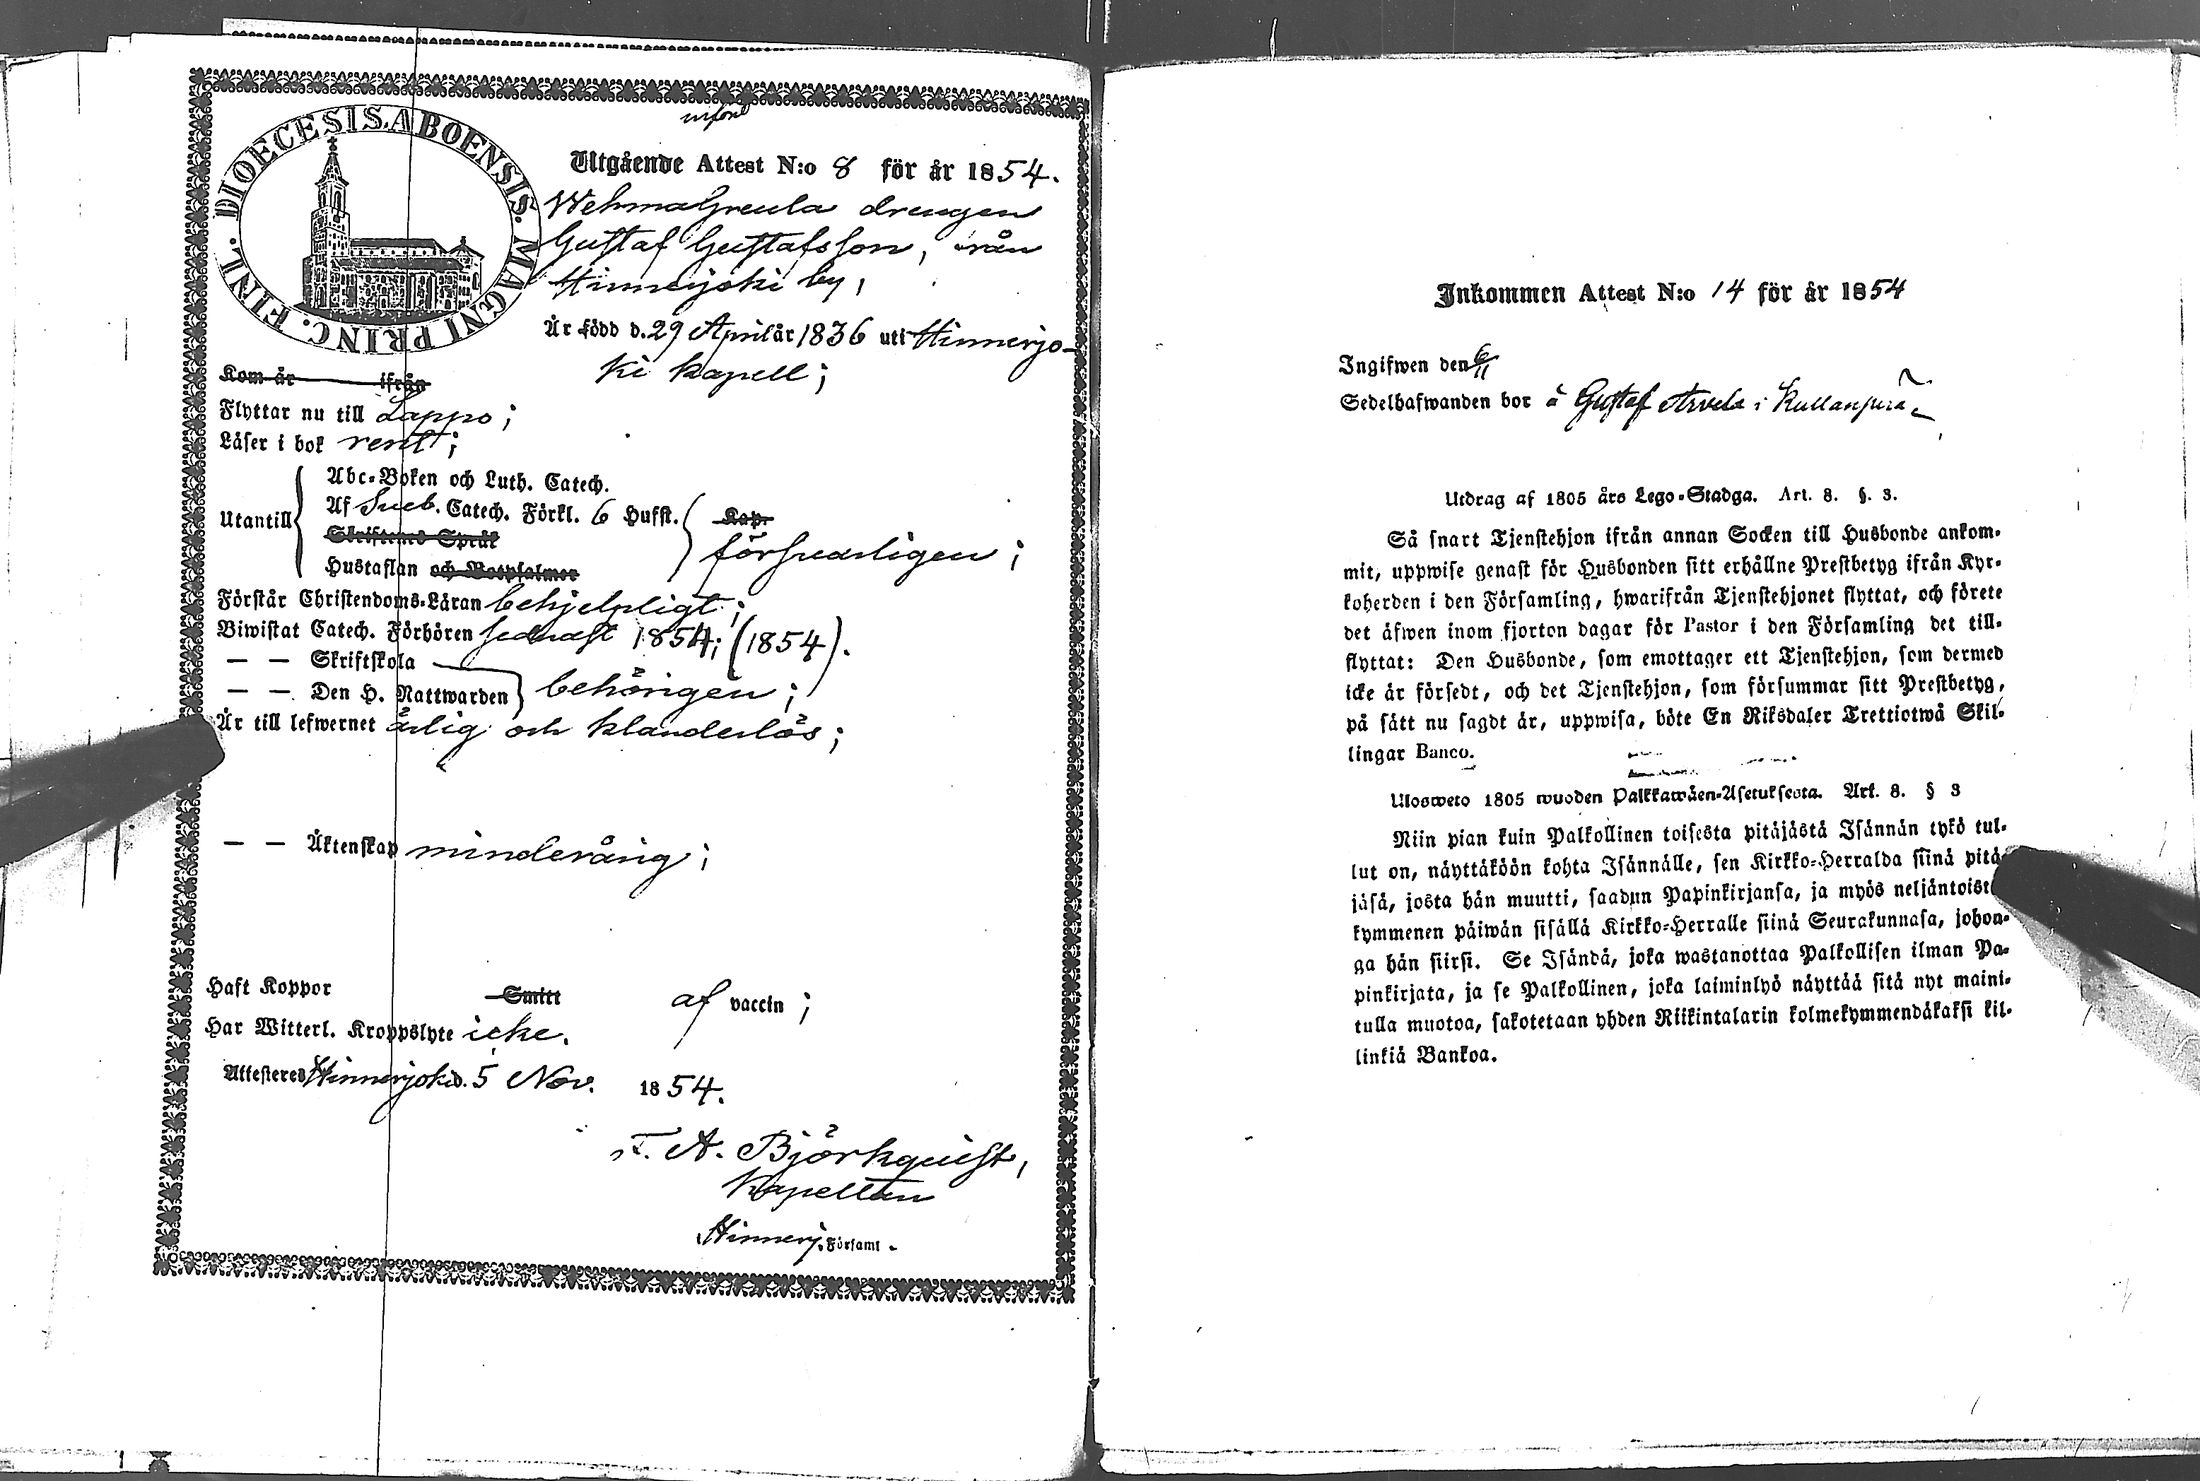 DIOECESIS ABOENSIS. MAGNI PRINC. FINL.
Utgående Attest N:o 8 för år 1854.
Wehma Greula drengen
Gustaf Gustafsson, från
Hinnerjoki by,
Är född d. 29 April år 1836 uti Hinnerjo-
ki kapell;
Kom år ifrån
Flyttar nu till Lappo;
Läser i bok rent;
Utantill
Abc-Boken och Luth. Catech.
Af Sveb. Catech. Förkl. 6 Hufst.
Kap.
Skriftens Språk
försvarligen;
Hustaflan och Botpsalmer
Förstår Christendoms-Läran behjelpligt;
Biwistat Catech. Förhören sednast 1854; (1854).
— — Skriftskola
— — Den H. Nattwarden behörigen;
Är till lefwernet ärlig och klanderlös;
— — Äktenskap minderårig;
Haft Koppor Smitt af vaccin;
Har Witterl. Kroppslyte icke.
Attesteres Hinnerjoki d. 5 Nov. 1854.
F. A. Björkquist,
Kapellan
Hinnerj. Församl.
Inkommen Attest N:o 14 för år 1854
Ingifwen den 6/11
Sedelhafwanden bor å Gustaf Arvela i
Utdrag af 1805 års Lego-Stadga. Art. 8. §. 3.
Så snart Tjenstehjon ifrån annan Socken till Husbonde ankom-
mit, uppwise genast för Husbonden sitt erhållne Prestbetyg ifrån Kyr-
koherden i den Församling, hwarifrån Tjenstehjonet flyttat, och förete
det äfwen inom fjorton dagar för Pastor i den Församling det till-
flyttat: Den Husbonde, som emottager ett Tjenstehjon, som dermed
icke är försedt, och det Tjenstehjon, som försummar sitt Prestbetyg,
på sätt nu sagdt är, uppwisa, böte En Riksdaler Trettiotwå Skil-
lingar Banco.
Ulosweto 1805 wuoden Palkkawäen-Asetuksesta. Art. 8. § 3
Niin pian kuin Palkollinen toisesta pitäjästä Isännän tykö tul-
lut on, näyttäköön kohta Isännälle, sen Kirkko-Herralda siinä pitä-
jäsä, josta hän muutti, saadun Papinkirjansa, ja myös neljäntoista
kymmenen päiwän sisällä Kirkko-Herralle siinä Seurakunnasa, johon-
ga hän siirsi. Se Isändä, joka wastanottaa Palkollisen ilman Pa-
pinkirjata, ja se Palkollinen, joka laiminlyö näyttää sitä nyt maini-
tulla muotoa, sakotetaan yhden Riikintalarin kolmekymmendäkaksi kil-
linkiä Bankoa.